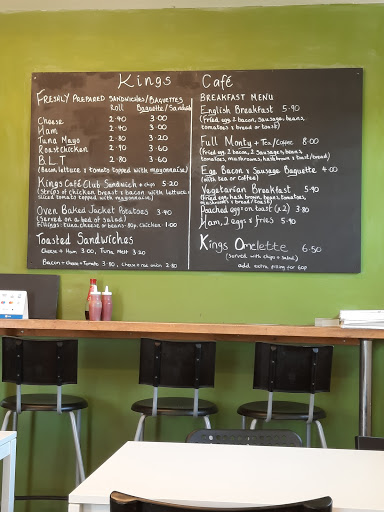 Kings Café
FRESHLY PREPARED SANDWICHES/BAGUETTES
Roll Baguette/Sandwich
Cheese 2.40 3.00
Ham 2.40 3.00
Tuna Mayo 2.80 3.20
Roast chicken 2.40 3.60
B.L.T 2.80 3.60
(Bacon, lettuce & tomato topped with mayonnaise)
Kings Café Club Sandwich + chips 5.20
(Strips of chicken breast & bacon with lettuce & sliced tomato topped with mayonnaise)
Oven Baked Jacket Potatoes 3.40
(Served on a bed of salad)
Fillings: tuna, cheese or beans . 80p, chicken 1.00
Toasted Sandwiches
Cheese + Ham 3.00, Tuna Melt 3.20
Bacon + Cheese + Tomato 3.80, Cheese + red onion 2.80
BREAKFAST MENU
English Breakfast 5.90
(fried egg, 2 bacon, sausage, beans,
tomatoes & bread or toast)
Full Monty + Tea/Coffee 8.00
(fried egg, 2 bacon, 2 sausages, beans,
tomatoes, mushrooms, hashbrown & toast/bread)
Egg, Bacon & Sausage Baguette 4.00
(with tea or coffee)
Vegetarian Breakfast 5.90
(fried egg, hash brown, beans, tomatoes,
mushrooms & bread/toast)
Poached eggs on toast (x2) 3.80
Ham, 2 eggs & fries 5.90
Kings Omelette 6.50
(served with chips & salad)
add extra filling for 60p